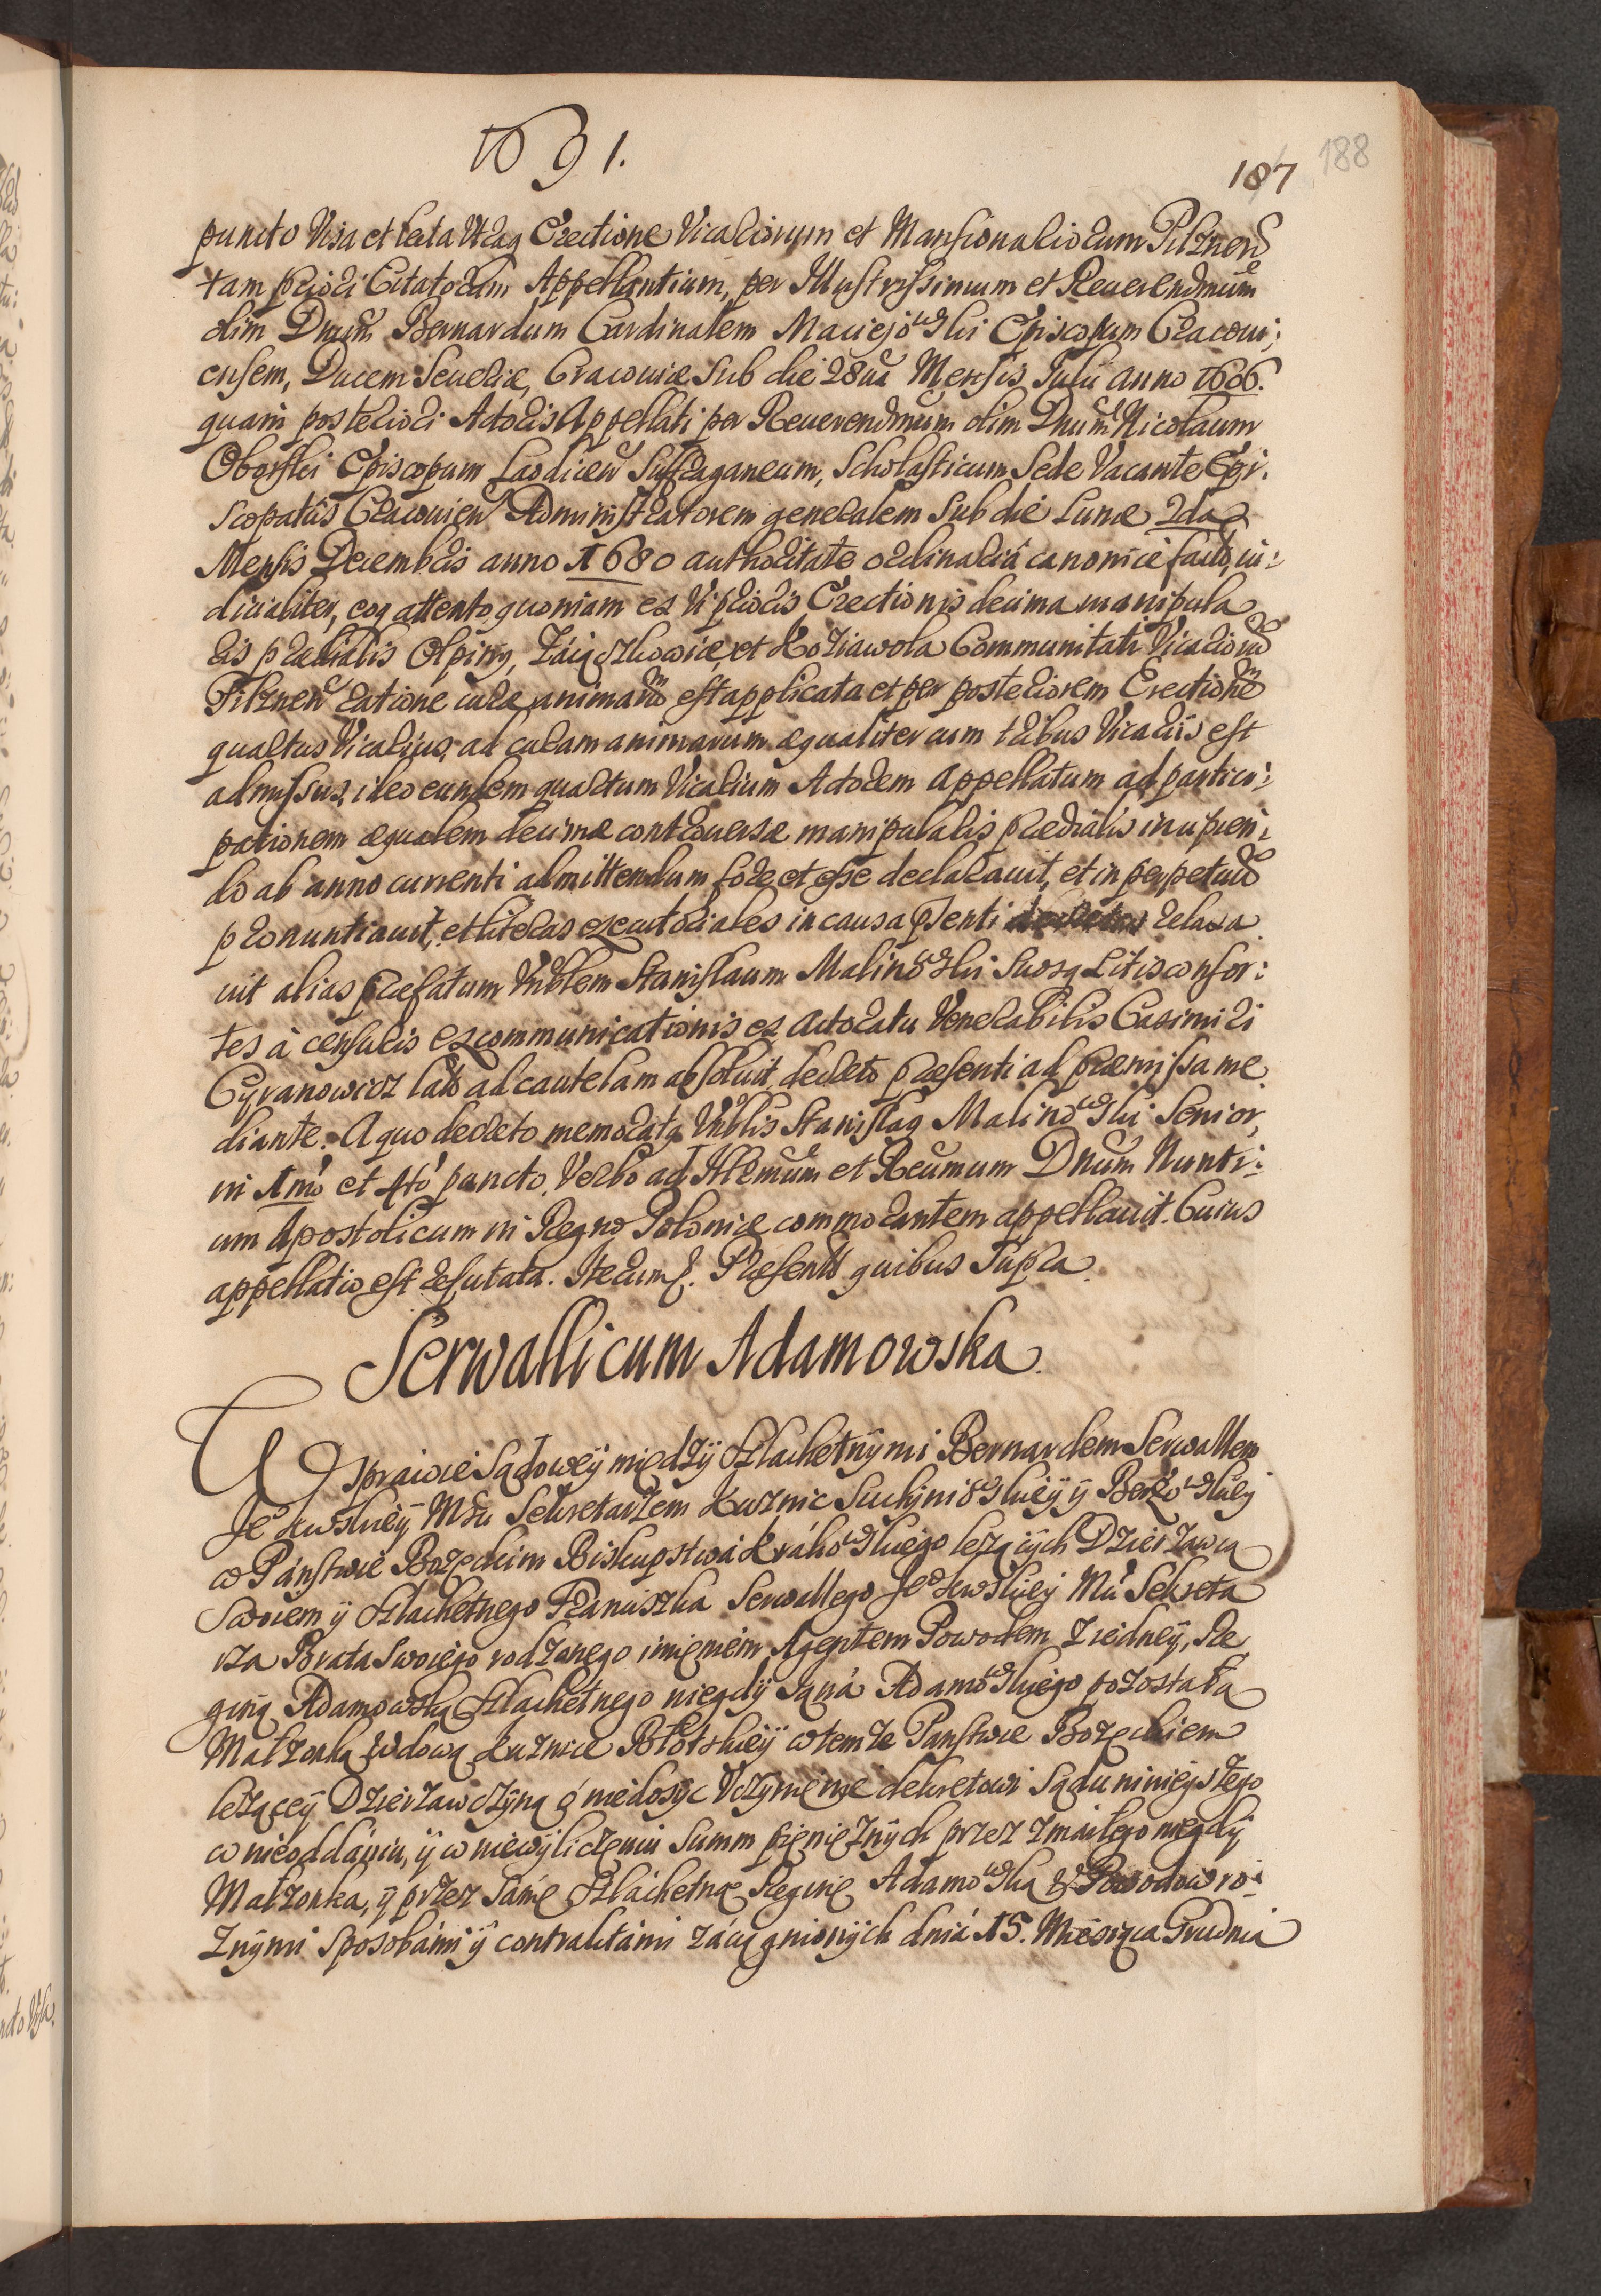 1691.
187 188
puncto Visa et lecta Utraq Erectione Vicariorum et Mansionariorum Pilznen
tam priori Citatorum Appellantium, per Illustrissimum et Reuerendmum
olim Dnum Bernardum Cardinalem Maciejowski Episcopum Cracoui:
ensem, Ducem Seueriæ, Cracouiæ Sub die 28ua Mensis Julii anno 1606.
quam posteriori Actoris Appellati per Reuerendmum olim Dnum Nicolaum
Oborski Episcopum Laodicen Suffraganeum, Scholasticum Sede Vacante Epi:
scopatus Cracouien Administratorem generalem Sub die Lunæ 2da
Mensis Decembris anno 1680 authoritate ordinaria canonice facta, iu:
dicialiter, eoq attento, quoniam ex Vi prioris Erectionis decima manipula
ris prædialis Olpiny, Zaięczkowice, et Koziawola Communitati Vicariorum
Pilznen ratione curæ animarum est applicata et per posteriorem Erectionem
quartus Vicarius, ad curam animarum æqualiter cum tribus Vicariis est
admissus, ideo eundem quartum Vicarium Actorem Appellatum ad partici:
pationem æqualem decimæ controuersæ manipularis prædialis incipien:
do ab anno currenti admittendum fore et esse declarauit, et in perpetuum
pronuntiauit, et literas executoriales in causa pnti relaxa
uit alias præfatum Vnblem Stanislaum Malinowski Suosq Litisconsor:
tes à censuris excommunicationis ex actoratu Venerabilis Casimiri
Cyranowicz lato ad cautelam absoluit, decreto præsenti ad præmissa me
diante. A quo decreto memoratq Vnblis Stanislaq Malinowski Senior,
in 1mo et 4to puncto, Verbo ad Illmum et Reumum Dnum Nunti:
um Apostolicum in Regno Poloniæ commorantem appellauit. Cuius
appellatio est refutata. Iterum. Præsentib quibus Supra.
Serwallicum Adamowska.
W Sprawie Sądoweÿ międzÿ Szlachetnÿmi Bernardem Serwallem
Je Krolewskieÿ Mści Sekretarzem Kuznic Suchÿniowskieÿ ÿ Berezowskieÿ
w Państwie Bozęckim Biskupstwá Krákowskiego lezącÿch Dzierżawcą
Swoiem ÿ Szlachetnego Franciszka Serwallego Je Krolewskieÿ Mci Sekreta
rza Brata Swoiego rodzonego imięniem Agentem Powodem z iedneÿ, Re
giną Adamowską Szlachetnego niegdÿ Jana Adamowskiego pozostałą
Małzonką Wdową Kuznice Błotskieÿ w temze Panstwie Bozęckiem
lezącey Dzierzawczÿną o niedosÿc Vczÿnięnie dekretowi Sądu ninieyszego
w nieoddaniu, ÿ w niewÿliczeniu Summ pięniężnÿch przez zmarłego niegdÿ
Małzonka, ÿ przez Sámę Szláchetnę Reginę Adamowską z Powodow ro:
znÿmi Sposobámi ÿ contraktámi záciągnionÿch dniá 15. Miesiąca Grudnia